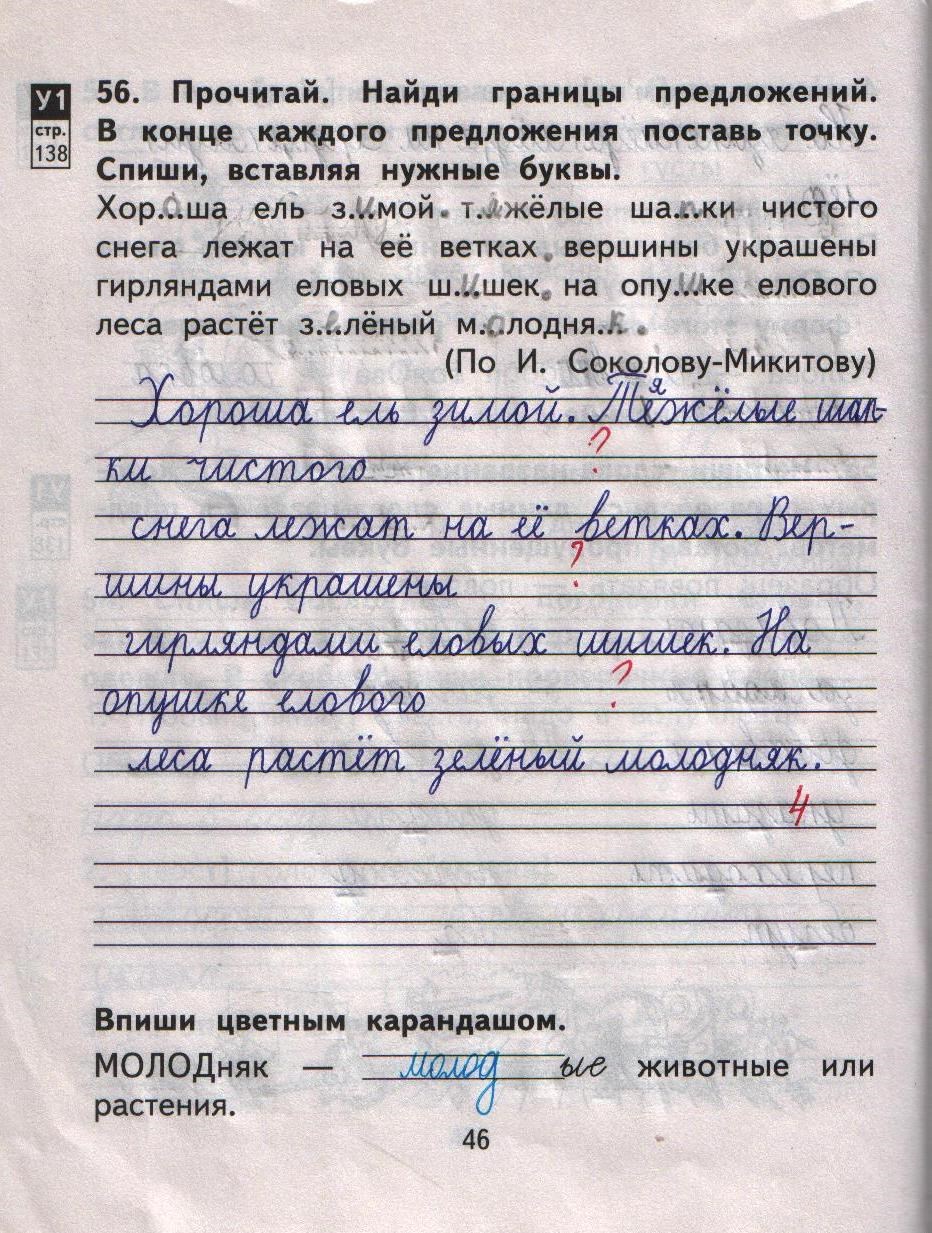 У1
стр.
138
56. Прочитай. Найди границы предложений.
В конце каждого предложения поставь точку.
Спиши, вставляя нужные буквы.
Хор..о.ша ель з..и.мой. т..я.жёлые ша..п.ки чистого
снега лежат на её ветках. вершины украшены
гирляндами еловых ш..и.шек. на опу..ш.ке елового
леса растёт з..е.лёный м..о.лодня..к..
(По И. Соколову-Микитову)
Хороша ель зимой. Тяжёлые шап-
?
ки чистого
снега лежат на её ветках. Вер-
?
шины украшены
гирляндами еловых шишек. На
?
опушке елового
леса растёт зелёный молодняк.
4
Впиши цветным карандашом.
МОЛОДняк — молодые животные или
растения.
46